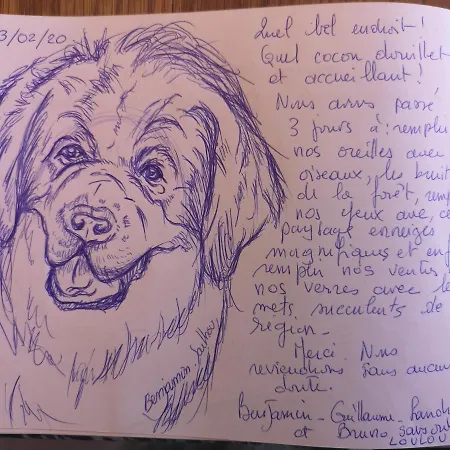 3/02/20
Quel bel endroit !
Quel cocon douillet
et accueillant !
Nous avons passé
3 jours à : remplir
nos oreilles avec
oiseaux, les bruit
de la forêt, remp
nos yeux avec ce
paysage enneigés
magnifiques et enf
remplir nos ventres
nos verres avec le
mets succulents de
région -
Merci. Nous
reviendrons sans aucun
doute.
Benjamin - Guillaume -
et Bruno,
LOULOU
Benjamin Loulou